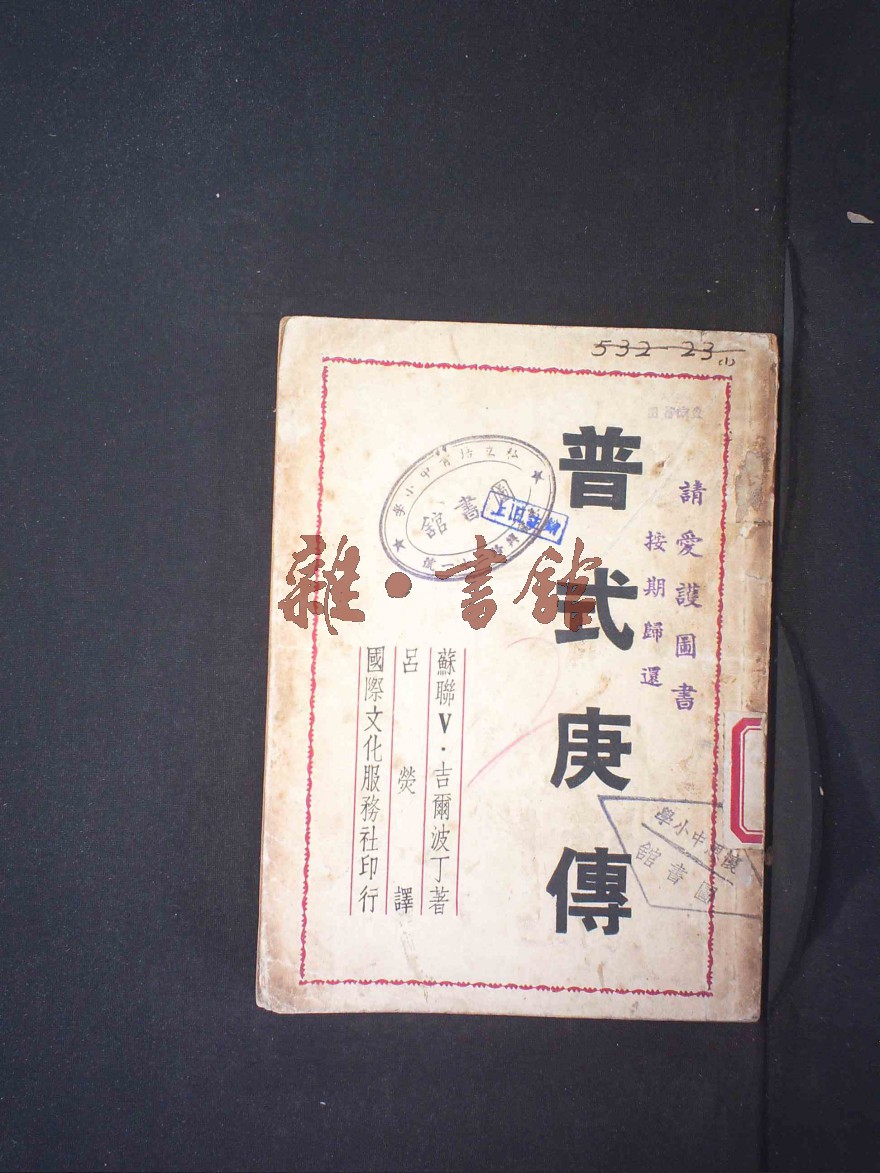 532-23(1)
請愛護圖書
按期歸還
普式庚傳
蘇聯V·吉爾波丁著
呂熒譯
國際文化服務社印行
雜·書館
中小學
書館
中小學
圖書館